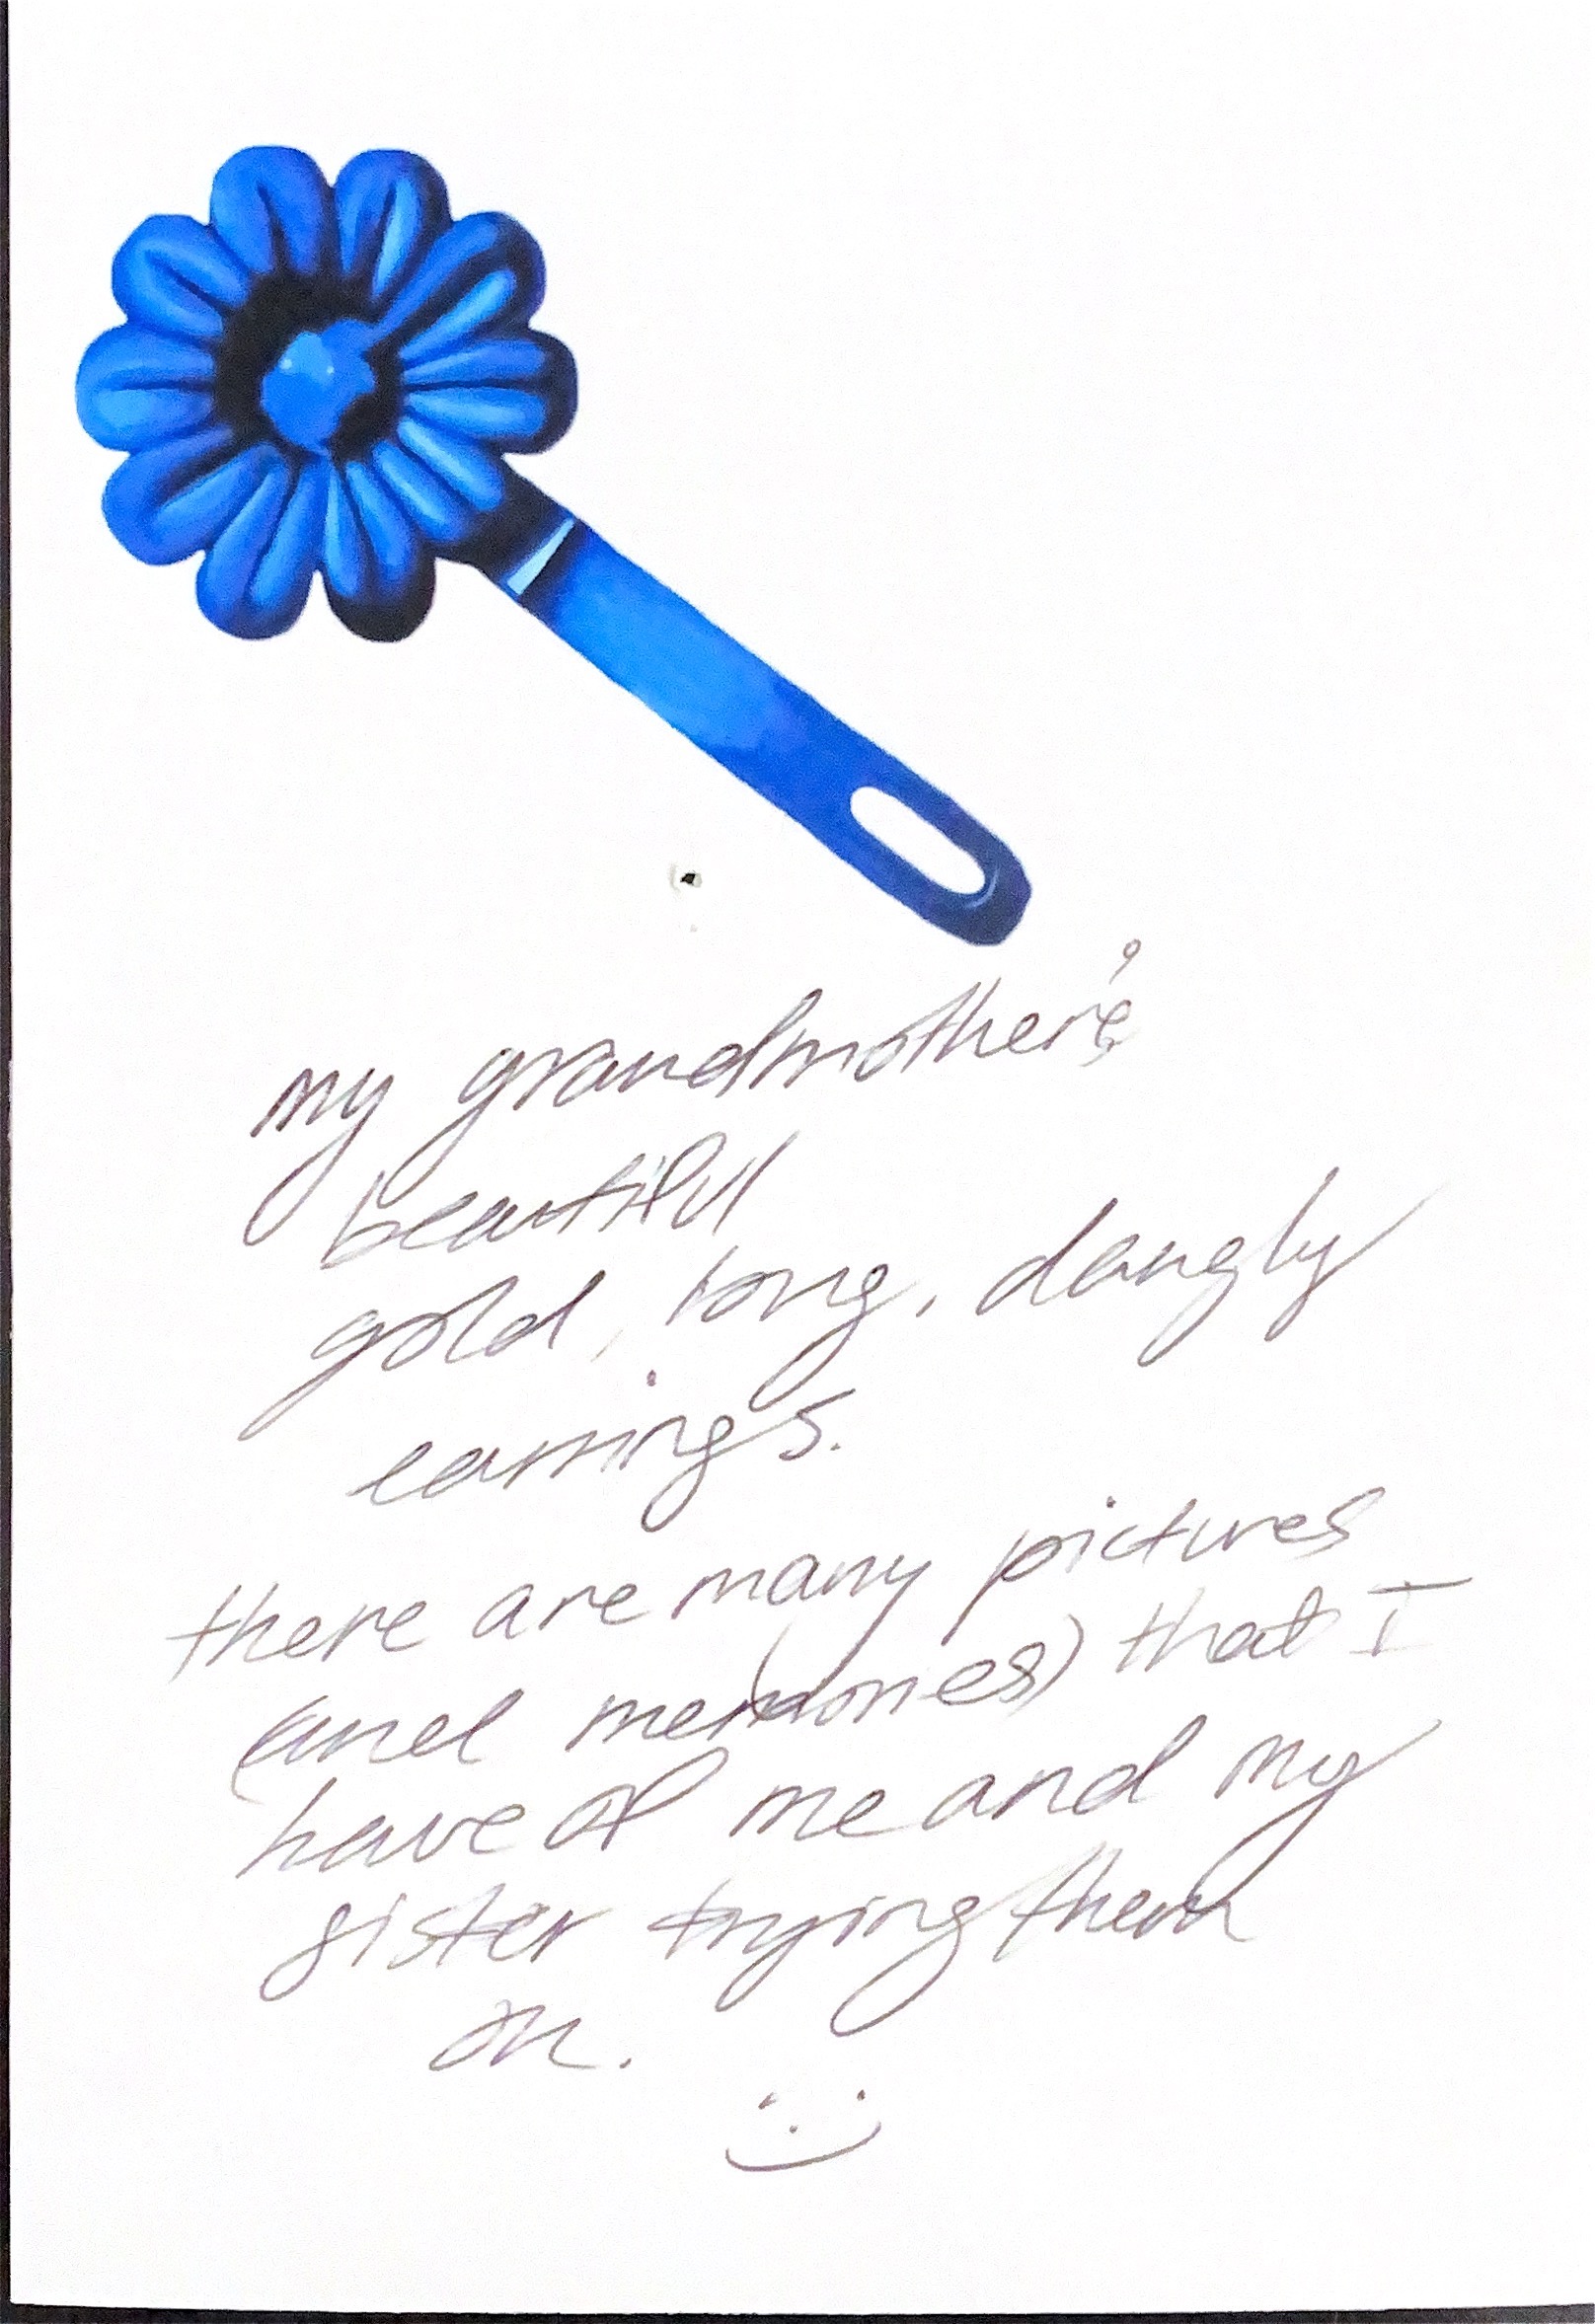 my grandmother's
beautiful
gold, long, dangly
earrings.
there are many pictures
(and memories) that I
have of me and my
sister trying them
on.